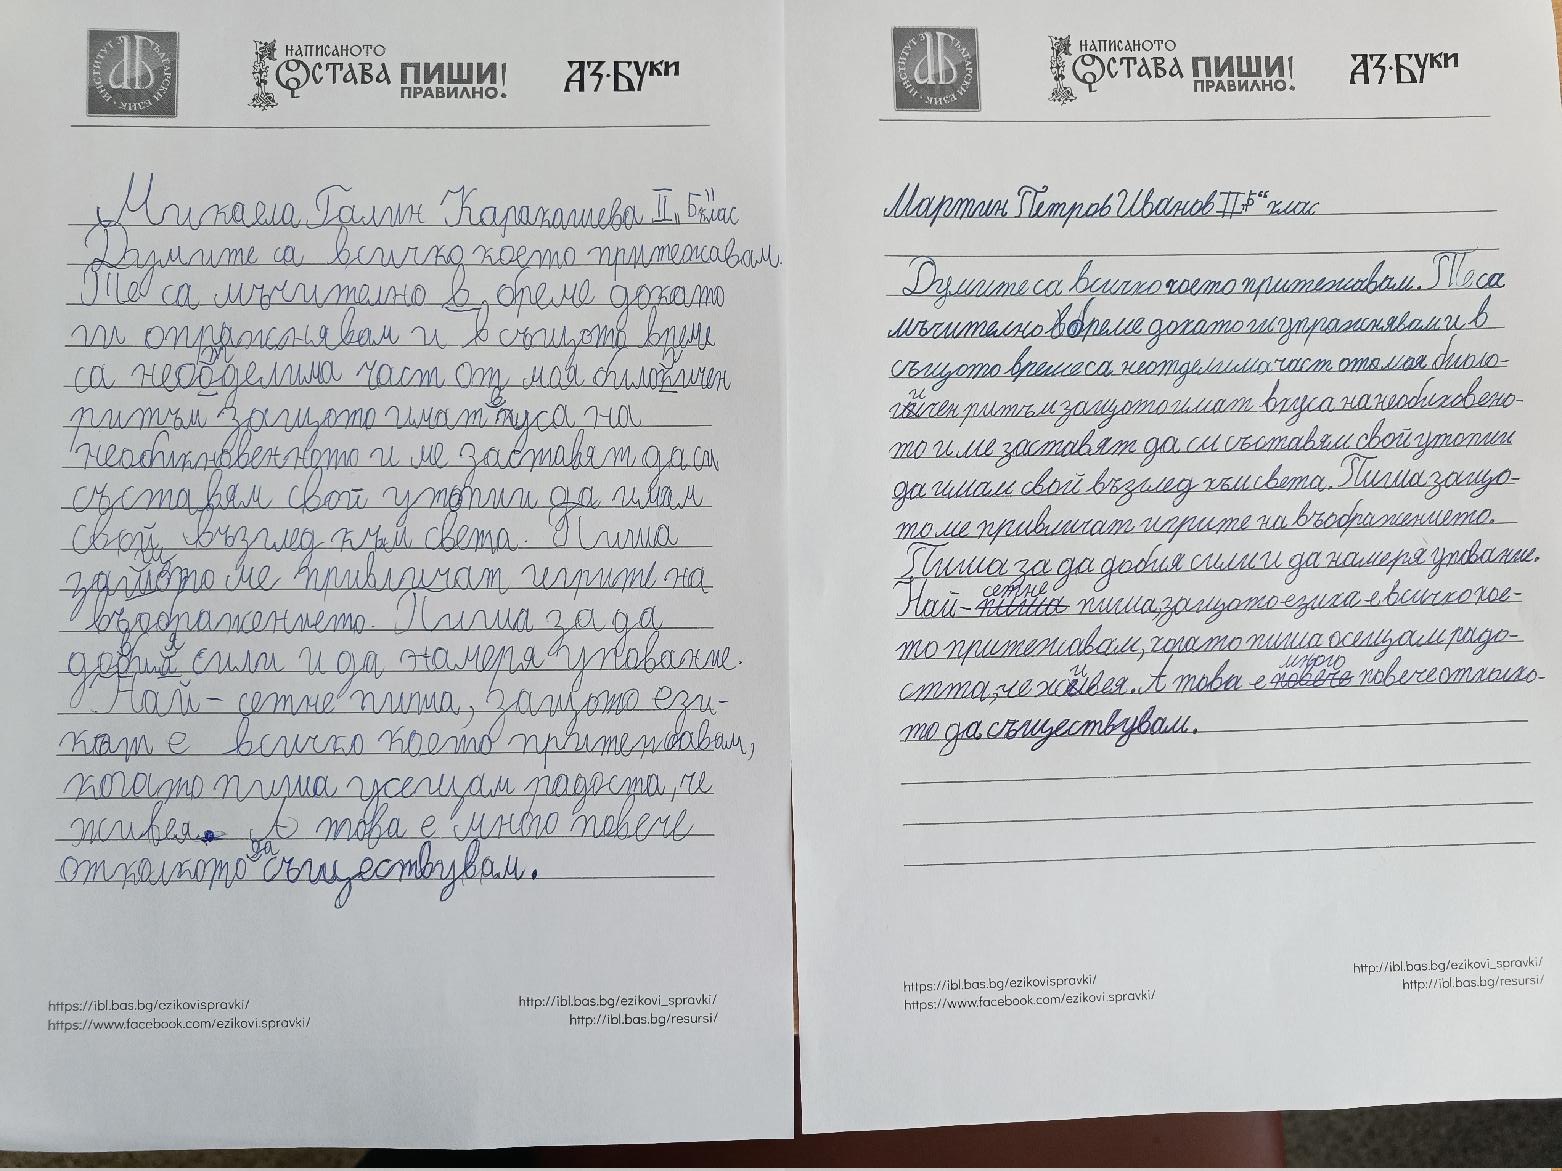 ИНСТИТУТ ЗА БЪЛГАРСКИ ЕЗИК
НАПИСАНОТО
ОСТАВА ПИШИ!
ПРАВИЛНО.
АЗ·БУКИ
Микаела Галин Каракашева II „Б" клас
Думите са всичко което притежавам.
Те са мъчително в време докато
ги опражнявам и в същото време
са неотделима част от моя билогичен
ритъм защото имат вкуса на
необикновенното и ме заставят да си
съставям свой утопии да имам
свой възглед към света. Пиша
защото ме привличат игрите на
въображението. Пиша за да
добия сили и да намеря упование.
Най-сетне пиша, защото ези-
кът е всичко което притежавам,
когато пиша усещам радоста, че
живея. А това е много повече
отколкото да съществувам.
https://ibl.bas.bg/ezikovispravki/
https://www.facebook.com/ezikovi.spravki/
http://ibl.bas.bg/ezikovi_spravki/
http://ibl.bas.bg/resursi/
ИНСТИТУТ ЗА БЪЛГАРСКИ ЕЗИК
НАПИСАНОТО
ОСТАВА ПИШИ!
ПРАВИЛНО.
АЗ·БУКИ
Мартин Петров Иванов II „Б“ клас
Думите са всичко което притежавам. Те са
мъчително бреме докато ги упражнявам и в
същото време са неотделима част от моя биоло-
гичен ритъм защото имат вкуса на необиковено-
то и ме заставят да си съставям свой утопии
да имам свой възглед към света. Пиша защо-
то ме привличат игрите на въображението.
Пиша за да добия сили и да намеря упование.
Най-сетне пиша, защото езика е всичко кое-
то притежавам, когато пиша осещам радо-
стта, че живея. А това е много повече отколко-
то да съществувам.
https://ibl.bas.bg/ezikovispravki/
https://www.facebook.com/ezikovi.spravki/
http://ibl.bas.bg/ezikovi_spravki/
http://ibl.bas.bg/resursi/